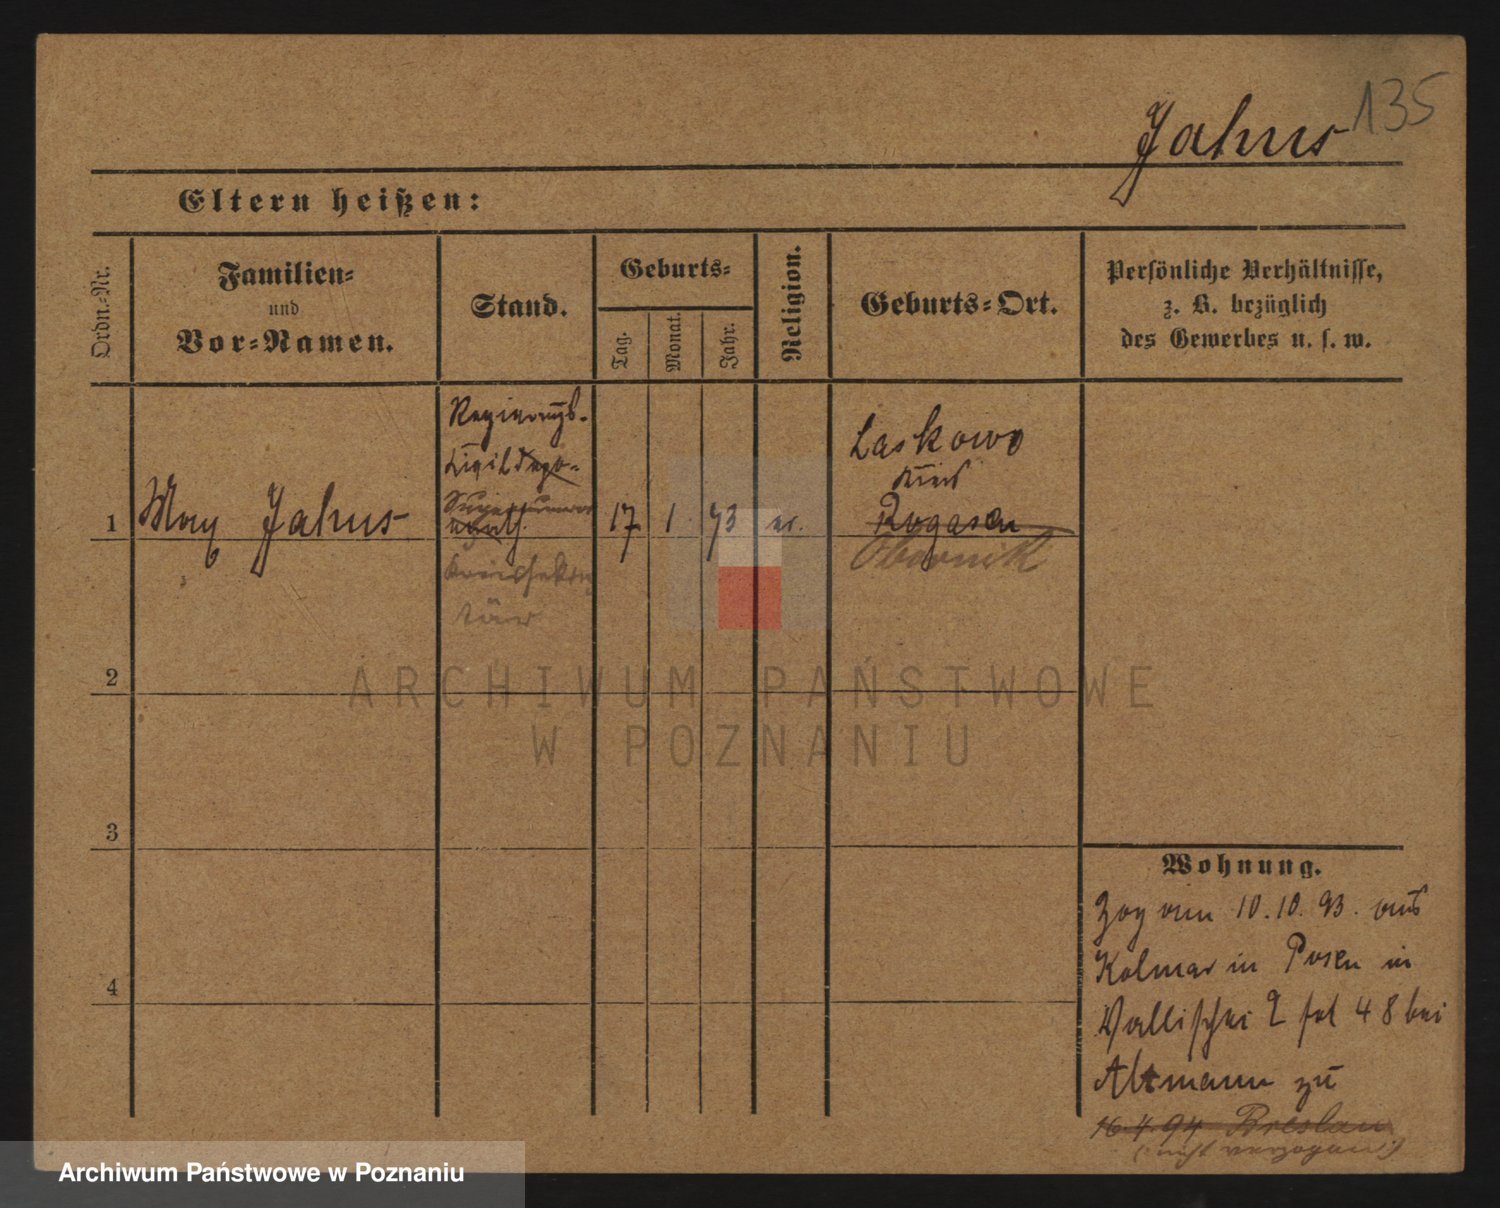 Jahns 135
Eltern heißen:
Ordn.-Nr.
Familien-
und
Vor-Namen.
Stand.
Geburts-
Tag.
Monat.
Jahr.
Religion.
Geburts-Ort.
Persönliche Verhältnisse,
z. B. bezüglich
des Gewerbes u. s. w.
Regierungs-
Civil
Supernumerar
1 Max Jahns 17. 1. 73 ev.
Laskowo
Kreis
Rogasen
Obornik
Kreissekre
tär
2
3
4
Wohnung.
Zog am 10.10.93. aus
Kolmar in Posen in
Wallischei 2 fol 48 bei
Altmann zu
16.4.94 Breslau
(nicht verzogen)
ARCHIWUM PAŃSTWOWE
W POZNANIU
Archiwum Państwowe w Poznaniu